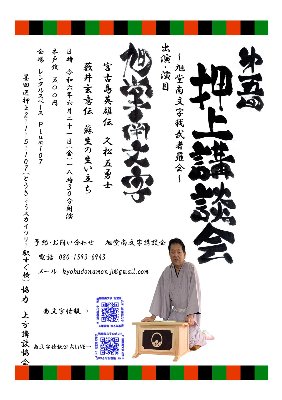 第五回
押上講談会
～旭堂南文字独武者羅会～
出演・演目
旭堂南文字
宮古島英雄伝 久松五勇士
萩井玄意伝 蘇生の生い立ち
日時 令和六年六月二十一日（金）一八時30分開演
木戸銭 五〇〇円
会場 レンタルスペース Plum107
協力 上方講談協会
予約・お問い合わせ 旭堂南文字講談会
電話 080 1593 6943
メール kyokudonamonji@gmail.com